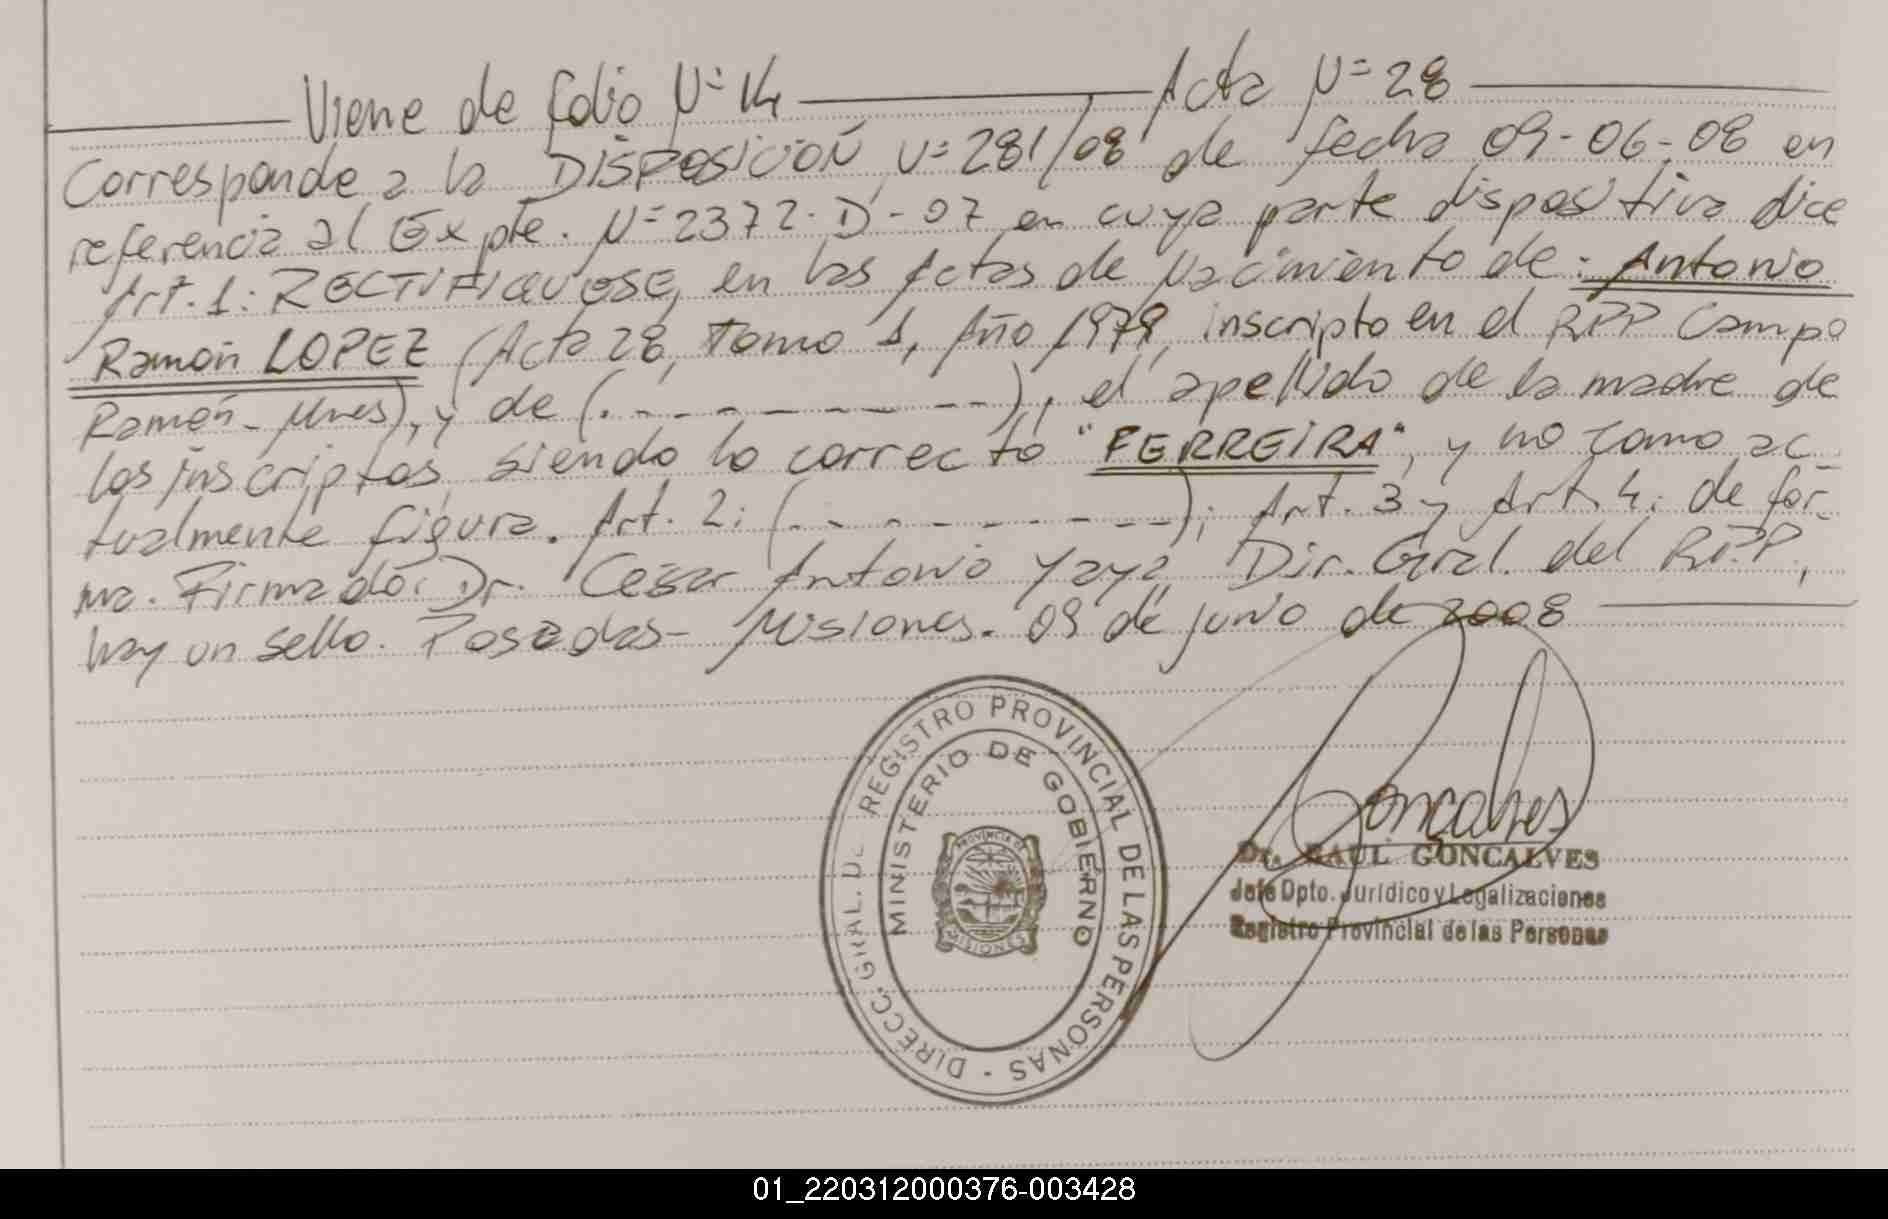 Viene de folio Nº 14 Acta Nº 28
Corresponde a la DISPOSICIÓN Nº 281/08 de fecha 09-06-08 en
referencia al Expte. Nº 2372-D-07 en cuya parte dispositiva dice
Art. 1: RECTIFIQUESE, en las Actas de Nacimiento de: Antonio
Ramón LOPEZ (Acta 28, Tomo 1, Año 1979, inscripto en el RPP Campo
Ramón - Mnes), y de (. - - - - - - - - -), el apellido de la madre de
los inscriptos, siendo lo correcto "FERREIRA", y no como ac-
tualmente figura. Art. 2: (. - - - - - - - - -); Art. 3 y Art. 4: de for-
ma. Firmado: Dr. César Antonio Yaya, Dir. Gral. del R.P.P.,
hay un sello. Posadas - Misiones. 09 de junio de 2008
DIRECC. GRAL. DE REGISTRO PROVINCIAL DE LAS PERSONAS -
MINISTERIO DE GOBIERNO
PROVINCIA DE
MISIONES
Gonçalves
Dr. RAUL GONCALVES
Jefe Dpto. Jurídico y Legalizaciones
Registro Provincial de las Personas
01_220312000376-003428